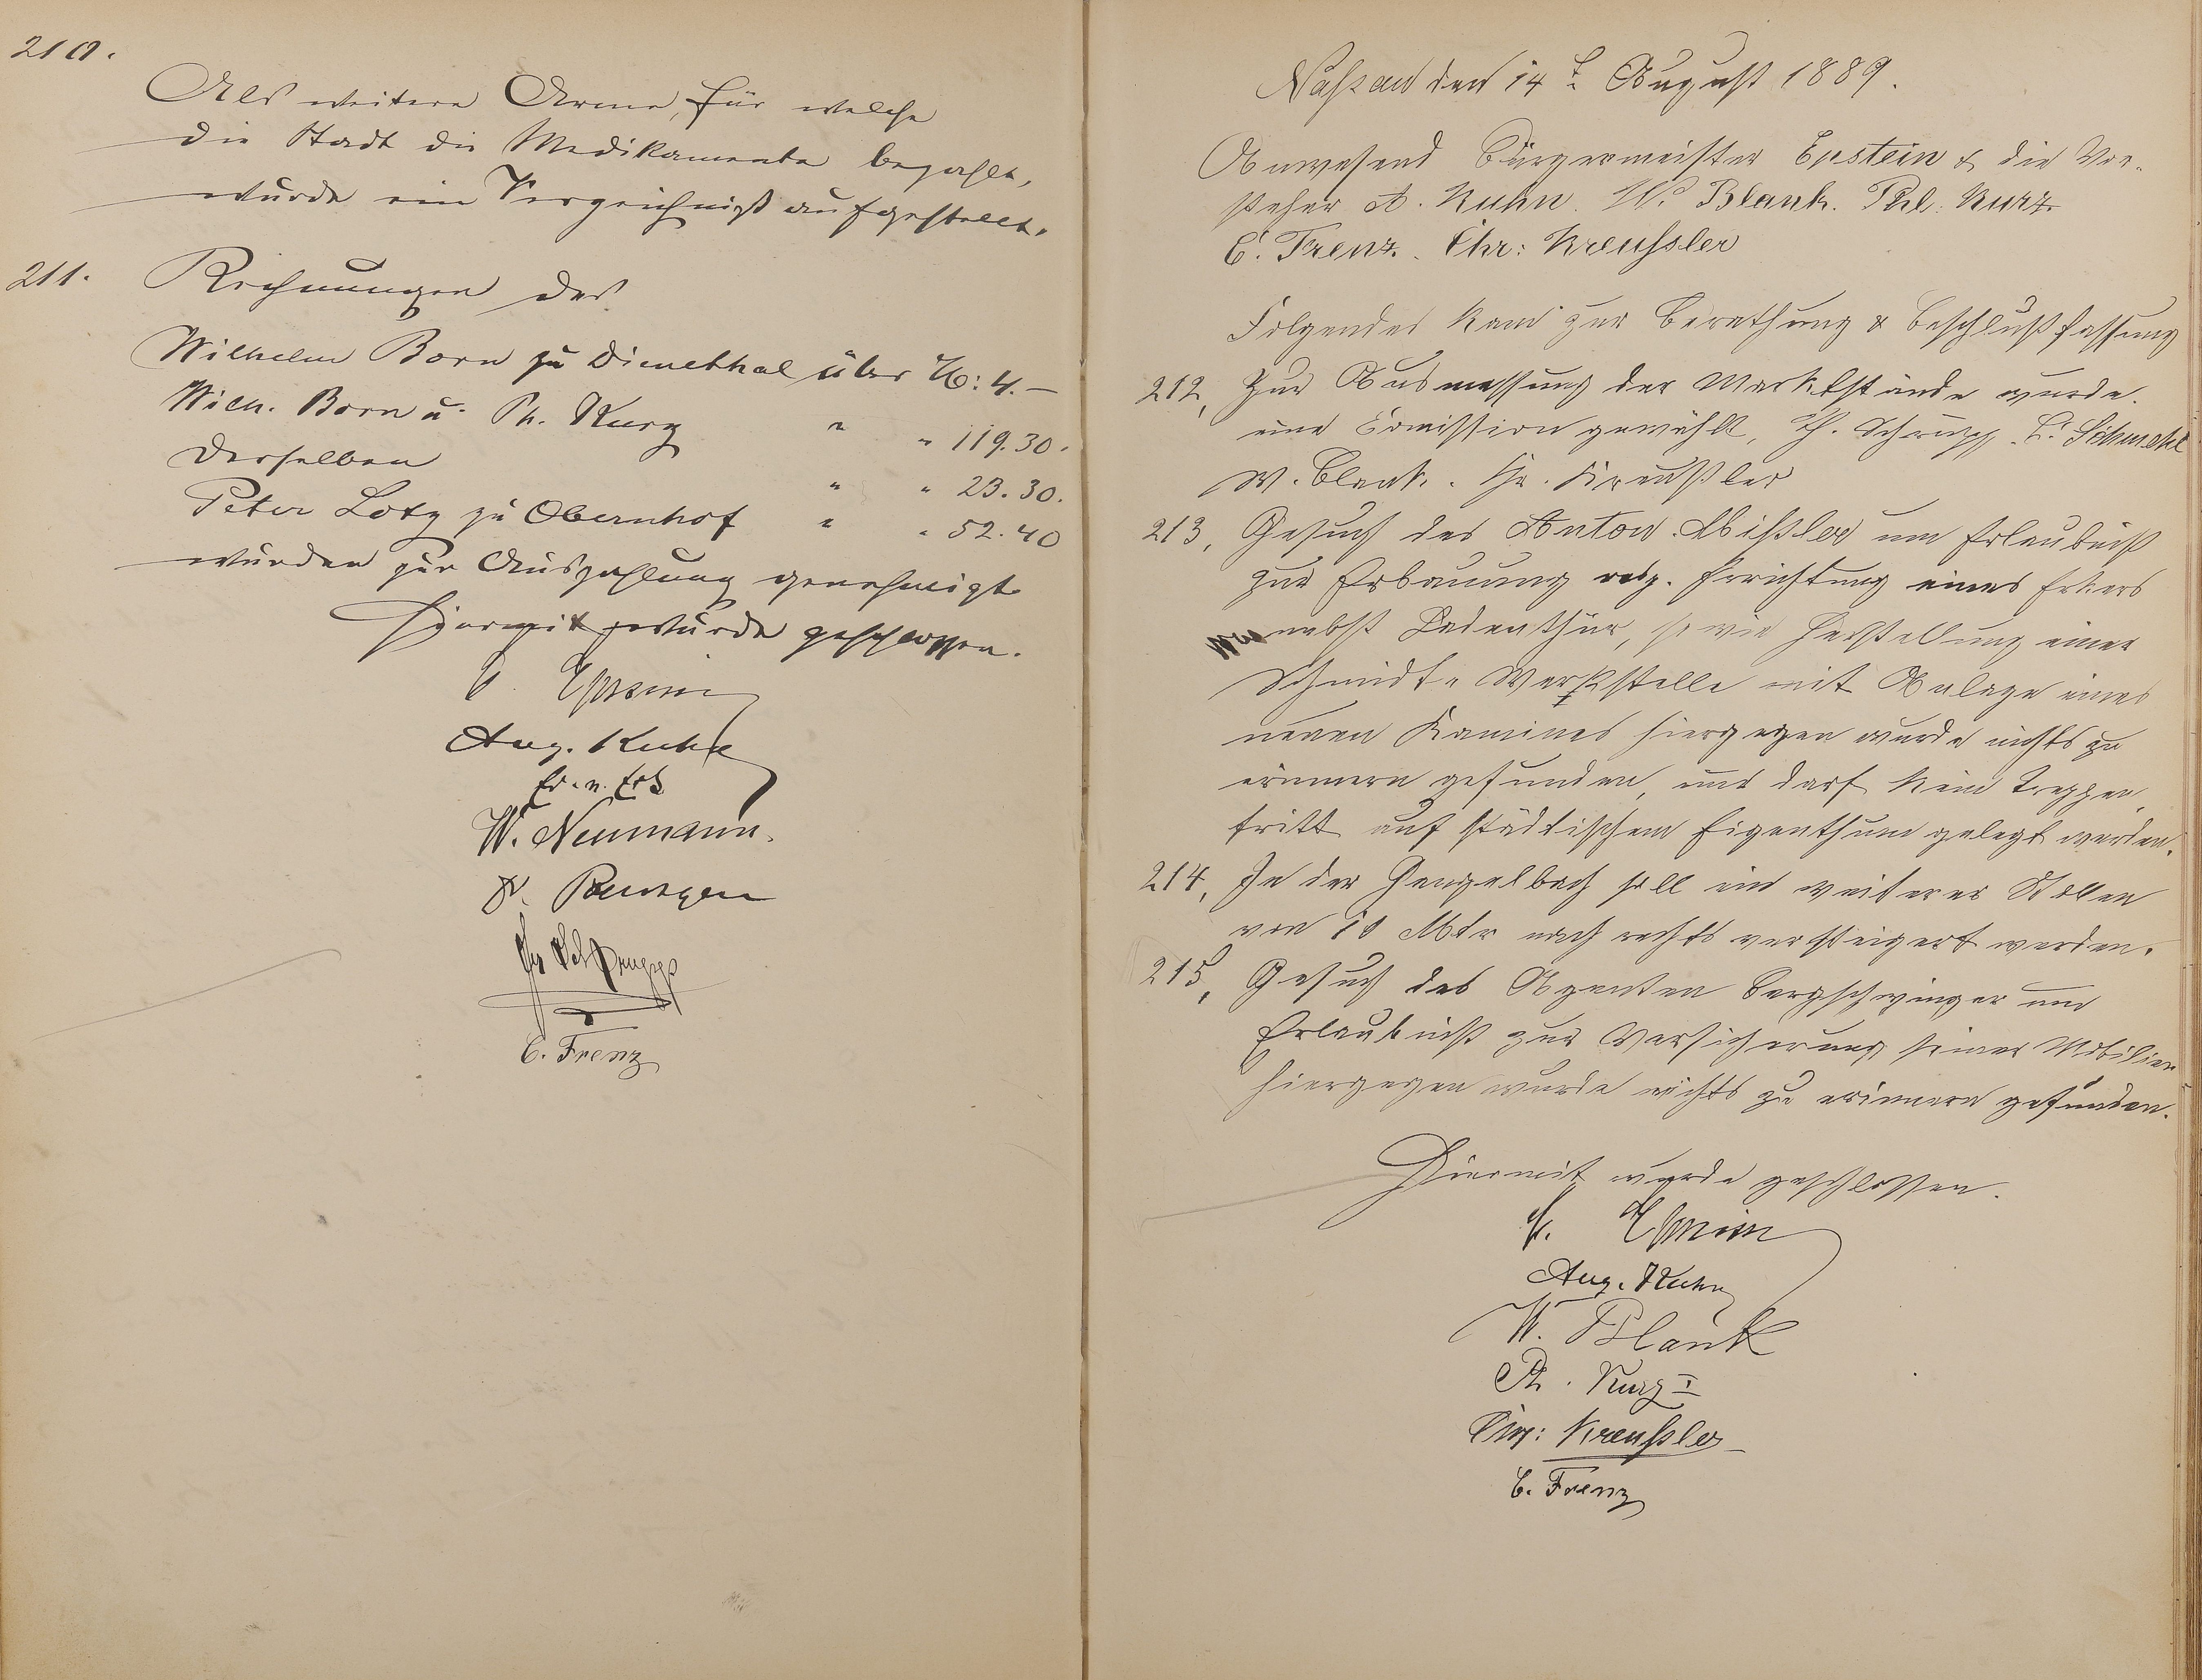 210.
Als weitere Arme, für welche
die Stadt die Medikamente bezahlt,
wurde ein Verzeichniß aufgestellt.
211. Rechnungen des
Wilhelm Born zu Dienethal über M: 4.—
Wilh. Born u. Ph. Kurz " " 119.30.
Derselben " " 23.30.
Peter Lotz zu Obernhof " " 52.40
wurden zur Auszahlung genehmigt
Hiermit wurde geschlossen.
Epstein
Aug. Kuhn
W. Neumann.
C. Frenz
Naßau den 14t August 1889.
Anwesend Bürgermeister Epstein & die Vor-
steher A. Kuhn. W. Blank. Phl. Kurz.
C. Frenz. Chr: Kreußler
Folgendes kam zur Berathung & Beschlußfassung
212, Zur Ausmessung der Marktstände wurde.
eine Comission gewählt, Ph. Schrupp, L. Schmehl
W. Blank. Chr. Kreußler
213, Gesuch des Anton Mißler um Erlaubniß
zur Erbauung resp. Errichtung eines Erkers
nebst Ladenthür, sowie Herstellung einer
Schmidt-Werkstelle mit Anlage eines
neuen Kamines hiergegen wurde nichts zu
erinnern gefunden, und darf kein Treppen
tritt auf städtischem Eigenthum gelegt werden.
214, In der Gengelbach soll ein weiterer Stollen
von 10 Mtr nach rechts versteigert werden.
215, Gesuch des Agenten Bergschwinger um
Erlaubniß zur Versicherung seiner Mobilien
hiergegen wurde nichts zu erinnern gefunden.
Hiermit wurde geschlossen.
Epstein
Aug. Kuhn
W. Blank
Ph. Kurz I
Chr: Kreußler
C. Frenz